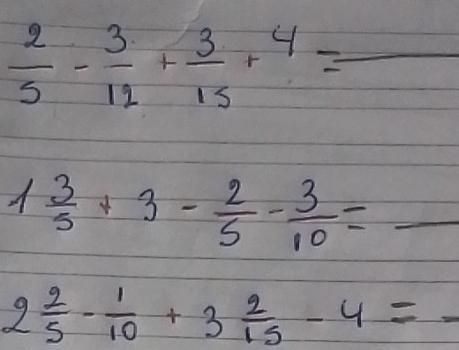 2/5 - 3/12 + 3/15 + 4 =
1 3/5 + 3 - 2/5 - 3/10 =
2 2/5 - 1/10 + 3 2/15 - 4 =